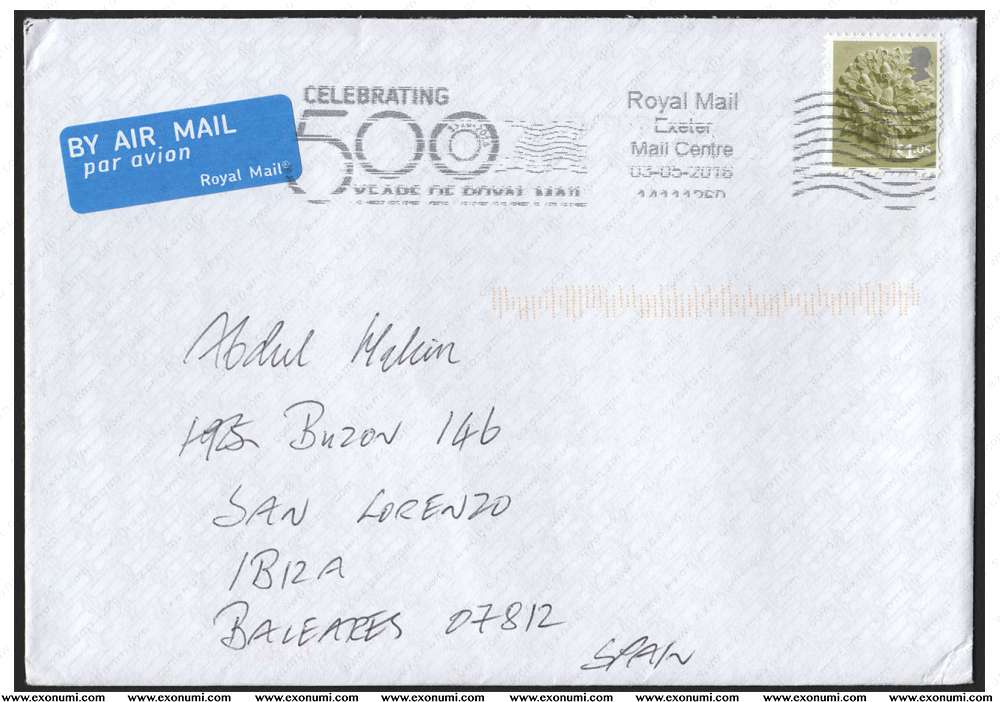 BY AIR MAIL
par avion
Royal Mail®
CELEBRATING
500
YEARS OF ROYAL MAIL
Royal Mail
Exeter
Mail Centre
03-05-2016
£1.05
Abdul Hakim
Buzon 146
SAN LORENZO
IBIZA
BALEARES 07812
SPAIN
www.exonumi.com www.exonumi.com www.exonumi.com www.exonumi.com www.exonumi.com www.exonumi.com www.exonumi.com www.exonumi.com